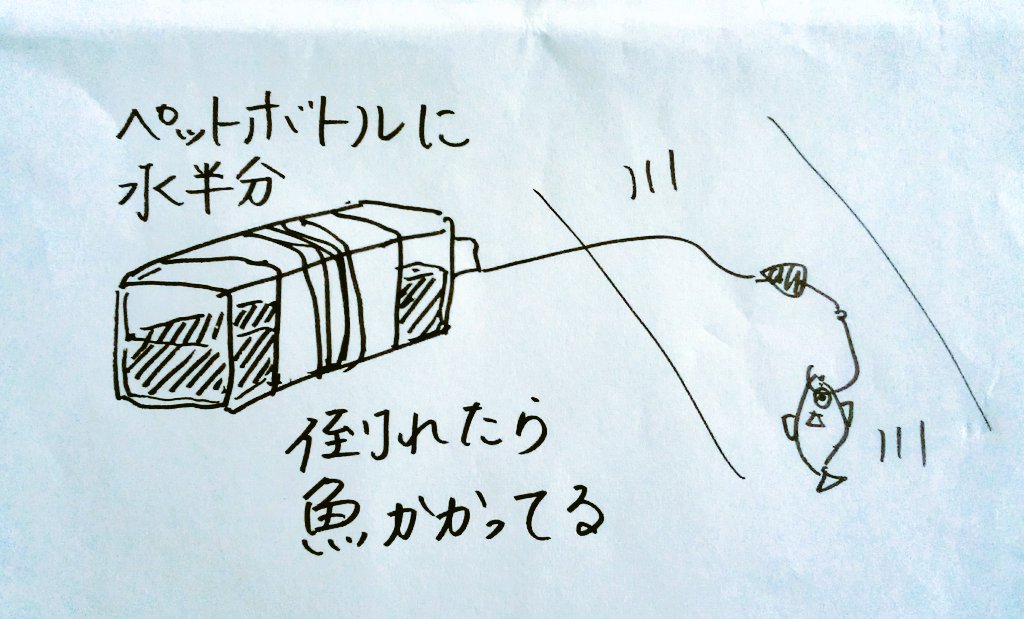 ペットボトルに
水半分
倒れたら
魚かかってる